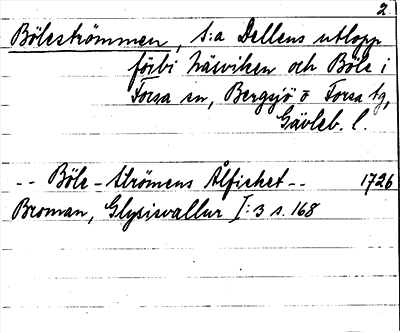 2.
Böleströmmen, s:a Dellens utlopp
förbi Näsviken och Böle i
Forsa sn, Bergsjö o Forsa tg,
Gävleb. l.
-- Böle-Strömens Ålfisket-- 1726
Broman, Glysisvallur I:3 s. 168